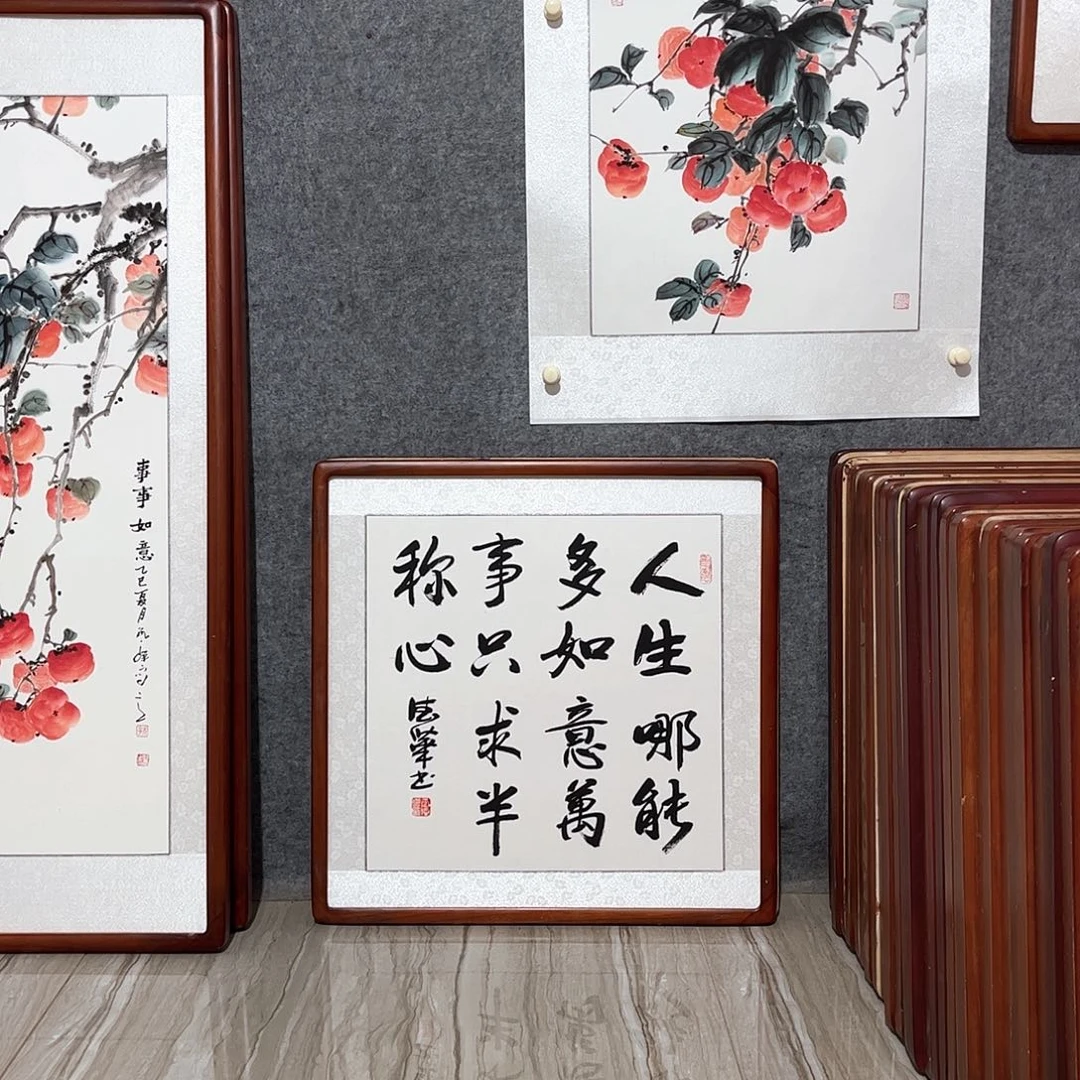 人生哪能
多如意萬
事只求半
称心
德華书
事事如意乙巳夏月